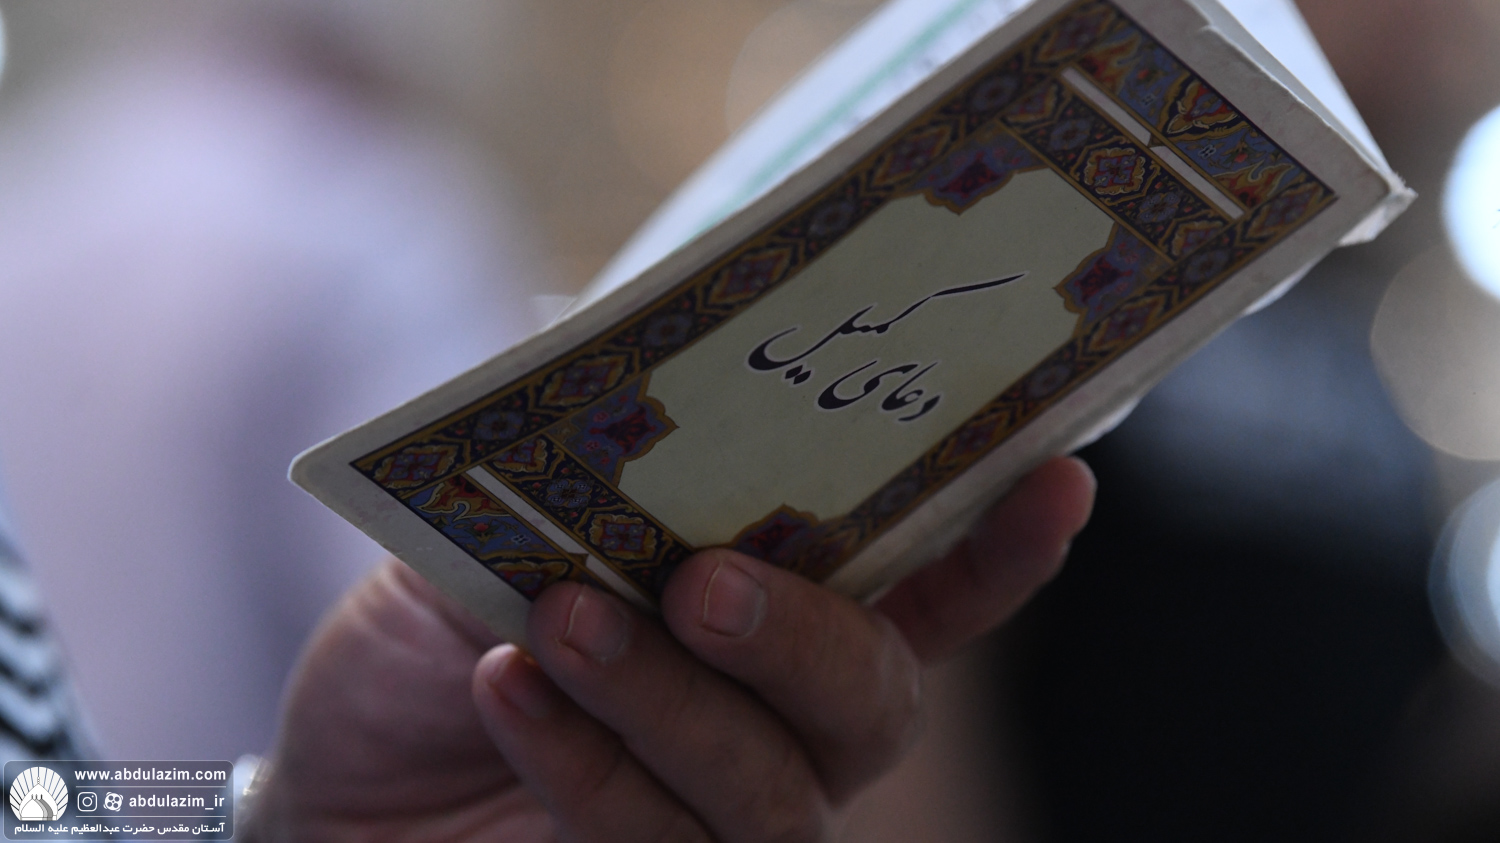 دعای کمیل
www.abdulazim.com
abdulazim_ir
آستان مقدس حضرت عبدالعظیم علیه السلام